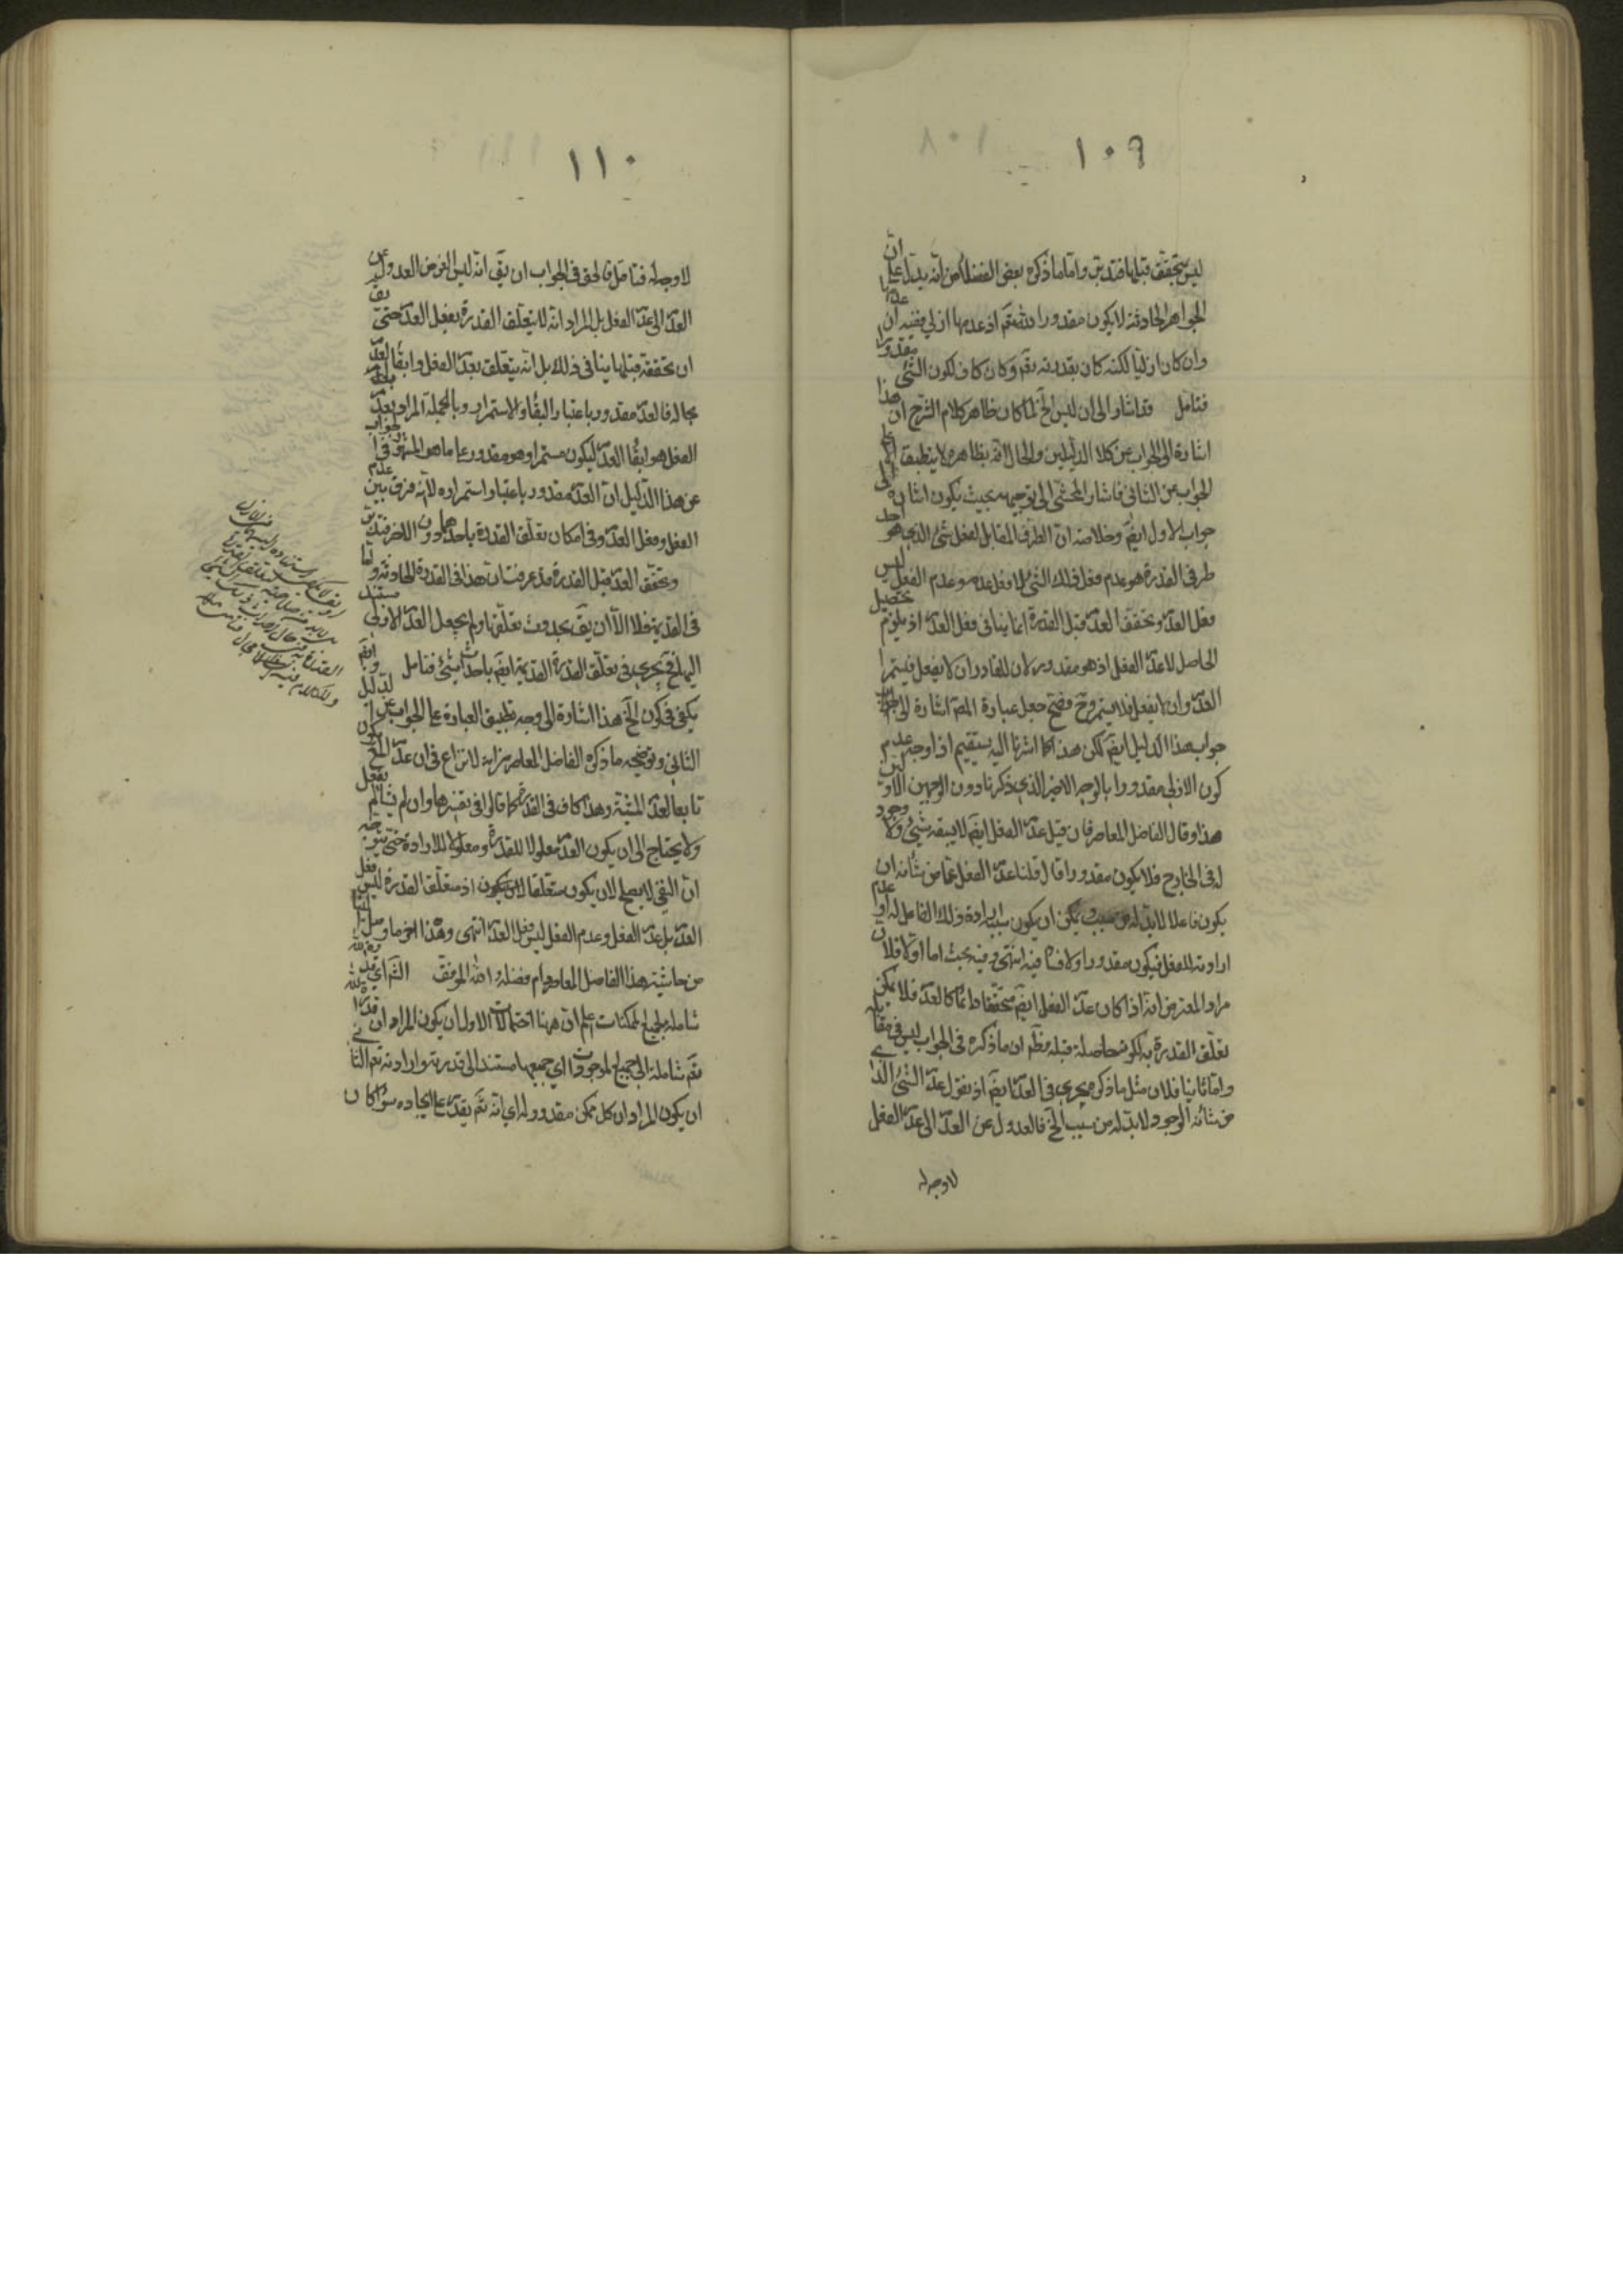 ١٠٩
ليس بتحقق قبلها فتدبر واما ما ذكره بعض الفضلا من انه يدل على ان
الجواهر الحادثة لا يكون مقدورا لله تقم اذ عدمها ازلي ففيه ان عدمها
وان كان ازليا لكنه كان بقدرته تقم وكان كاف لكون الشئ مقدورا
فتامل قد اشار الى ان ليس الخ لما كان ظاهر كلام الشرح ان هذا
اشارة الى الجواب عن كلا الدليلين والحال انه بظاهره لا ينطبق الا على
الجواب عن الثانى فاشار المحشى الى توجيهه بحيث يكون اشارة الى
جواب الاول ايضم وخلاصته ان الطرف المقابل لفعل شئ الذي هو احد
طرفى القدرة هو عدم فعل ذلك الشئ لا فعل عدمه وعدم الفعل ليس
فعل العدم وتحقق العدم قبل القدرة انما ينافى فعل العدم اذ يلزم تحصيل
الحاصل لا عدم الفعل اذ هو مقدور لان للقادر ان لا يفعل فيستمر
العدم وان يفعل فلا يستمر وح فصح جعل عبارة المصم اشارة الى
جواب هذا الدليل ايضم لكن هذا كما اشرنا اليه يستقيم اذا وجه عدم
كون الازلي مقدورا بالوجه الاخير الذي ذكرنا دون الوجهين الاولين
هذا وقال الفاضل المعاصر فان قيل عدم الفعل ايضم لا يسبقه شئ ولا وجود
له فى الخارج فلا يكون مقدورا قال قلنا عدم الفعل عما من شأنه ان
يكون فاعلا لا بد له من سبب ويمكن ان يكون سببه ارادة ذلك الفاعل له او عدم
ارادته للفعل فيكون مقدورا ولا فساد فيه انتهى وفيه بحث اما اولا فلان
مراد المعترض انه اذا كان عدم الفعل ايضم متحققا دائما كالعدم فلا يمكن
تعلق القدرة به لكونه حاصلا قبله فظهر ان ما ذكره فى الجواب ليس فى مقابله
واما ثانيا فلان مثل ما ذكره يجري فى العدم ايضم اذ نقول عدم الشئ الذي
من شأنه الوجود لا بد له من سبب الخ فالعدول عن العدم الى عدم الفعل
لا وجه له
١١٠
لا وجه له فتامل فالحق فى الجواب ان يق انه ليس الغرض العدول عن
العدم الى عدم الفعل بل المراد انه لا يتعلق القدرة بفعل العدم حتى يق
ان تحققه قبلها ينافى ذلك بل انه يتعلق بعدم الفعل وابقاء العدم
بحاله فالعدم مقدور باعتبار البقاء والاستمرار وبالجملة المراد بعدم
الفعل هو ابقاء العدم ليكون مستمرا وهو مقدور على ما هو المشهور فى الجواب
عن هذا الدليل ان العدم مقدور باعتبار استمراره لانه فرق بين عدم
الفعل وفعل العدم وفى امكان تعلق القدرة باحدهما دون الاخر فتدبر
وتحقق العدم قبل القدرة قد عرفت ان هذا فى القدرة الحادثة واما
فى القديمة فلا الا ان يق بحدوث تعلقها ولم يجعل العدم الازلى مستند
اليها فح يجرى فى تعلق القدرة القديمة ايضم باحداث شئ فتامل وايضم
يكفى فى كون الخ هذا اشارة الى وجه تطبيق العبارة على الجواب عن الدليل
الثانى وتوضيحه ما ذكره الفاضل المعاصر من انه لا نزاع فى ان عدم المع يكون
تابعا لعدم المشية وهذا كاف فى القدرة كما قالوا فى تفسيرها وان لم يشأ لم يفعل
ولا يحتاج الى ان يكون العدم معلولا للقدرة ومعلولا للارادة حتى يتوجه
ان النفي لا يصلح لان يكون متعلقا اذ متعلق القدرة ليس فعل
العدم بل عدم الفعل وعدم الفعل ليس فعل العدم انتهى وهذا اخر ما وصل الينا
من حاشية هذا الفاضل المعاصر دام فضله والله الموفق الشم اي قدرة الله
شاملة لجميع الممكنات اعلم ان ههنا احتمالات الاول ان يكون المراد ان قدرة الله
تقم شاملة الى جميع الموجودات اي جميعها مستند الى قدرته وارادته تعم الثانى
ان يكون المراد ان كل ممكن مقدور له اي انه تقم يقدر على ايجاده سواء كان